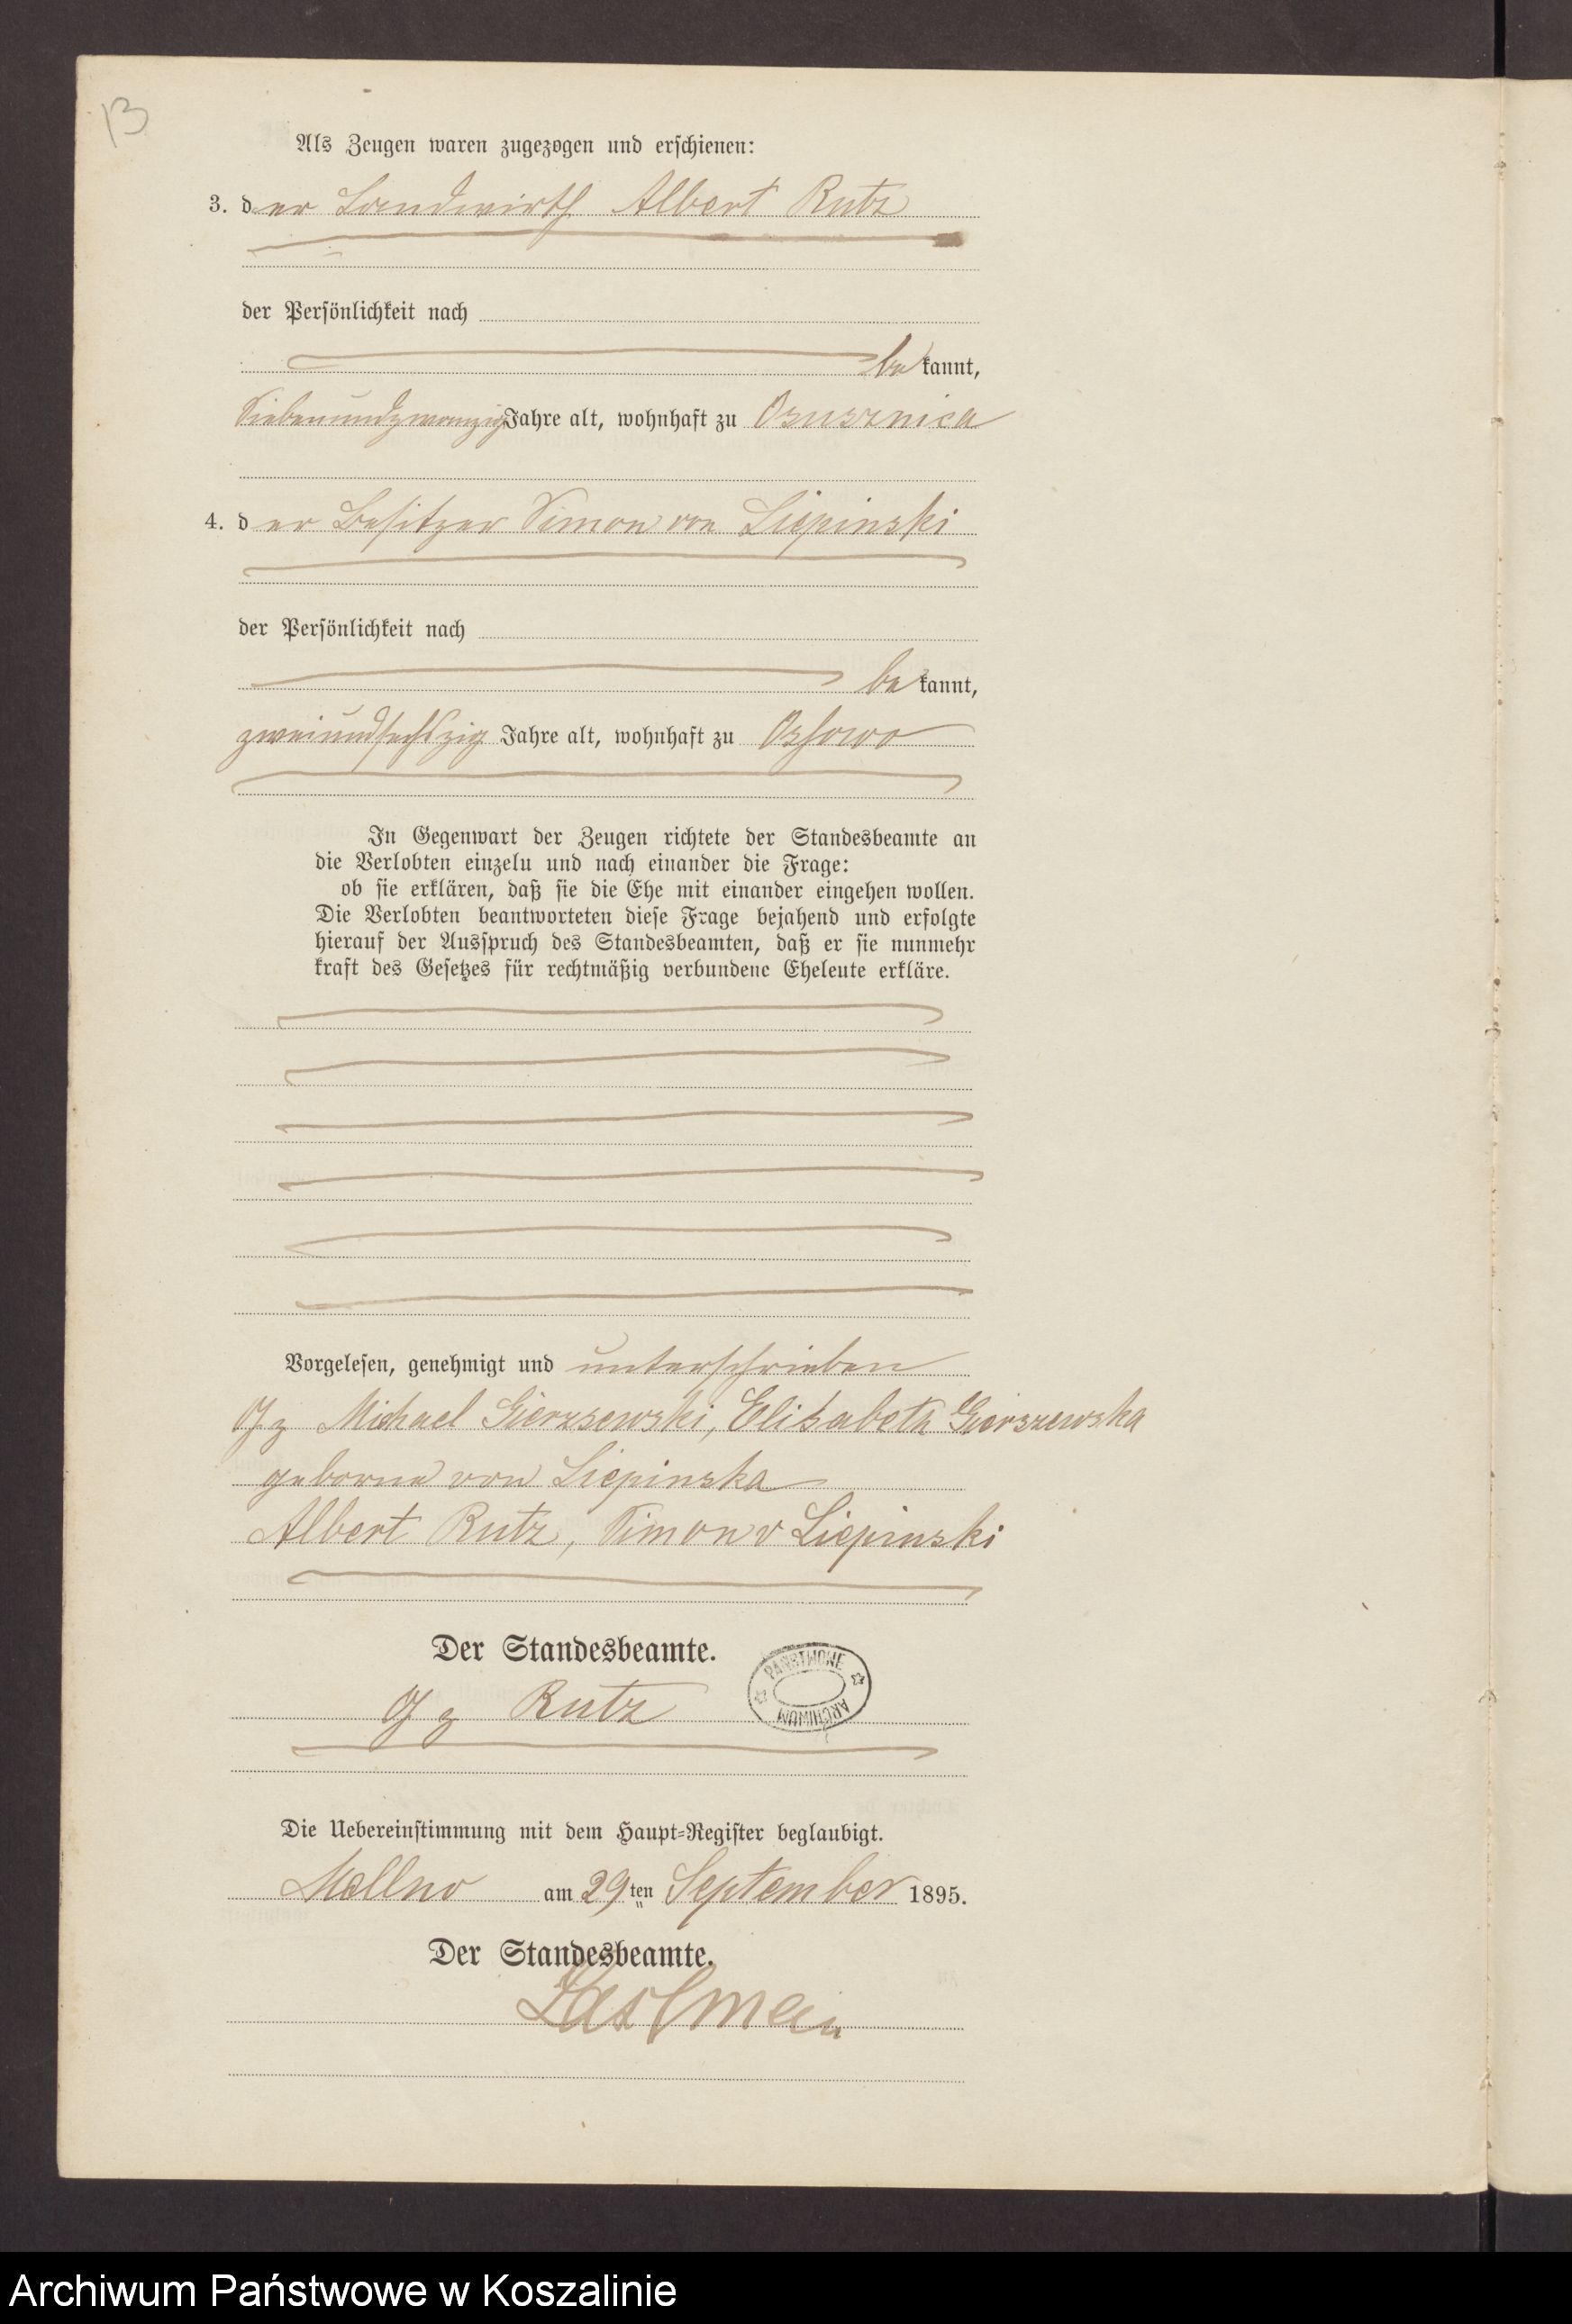 13
Als Zeugen waren zugezogen und erschienen:
3. der Landwirth Albert Rutz
der Persönlichkeit nach
bekannt,
Siebenundzwanzig Jahre alt, wohnhaft zu Osusznica
4. der Besitzer Simon von Liepinski
der Persönlichkeit nach
bekannt,
zweiundsechszig Jahre alt, wohnhaft zu Ossowo
In Gegenwart der Zeugen richtete der Standesbeamte an
die Verlobten einzeln und nach einander die Frage:
ob sie erklären, daß sie die Ehe mit einander eingehen wollen.
Die Verlobten beantworteten diese Frage bejahend und erfolgte
hierauf der Ausspruch des Standesbeamten, daß er sie nunmehr
kraft des Gesetzes für rechtmäßig verbundene Eheleute erkläre.
Vorgelesen, genehmigt und unterschrieben
Gz Michael Gierzsewski, Elisabeth Gierszewska
geborne von Liepinska
Albert Rutz, Simon v Liepinski
Der Standesbeamte.
PAŃSTWOWE
ARCHIWUM
Gz Rutz
Die Uebereinstimmung mit dem Haupt-Register beglaubigt.
Mellno am 29ten September 1895.
Der Standesbeamte.
Archiwum Państwowe w Koszalinie